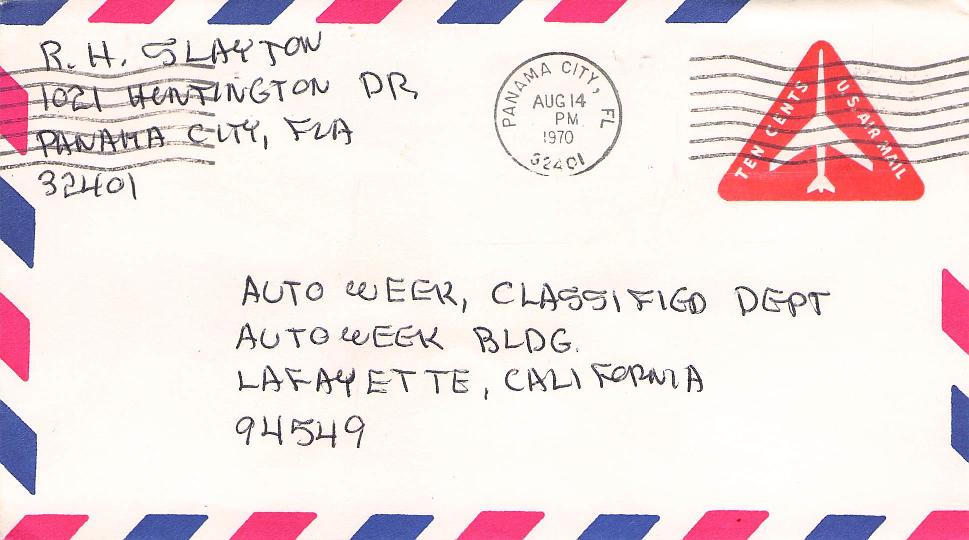 R. H. SLAYTON
1021 HUNTINGTON DR.
PANAMA CITY, FLA
32401
PANAMA CITY, FL
AUG 14
PM
1970
32401
TEN CENTS
U.S. AIR MAIL
AUTO WEEK, CLASSIFIED DEPT
AUTOWEEK BLDG.
LAFAYETTE, CALIFORNIA
94549